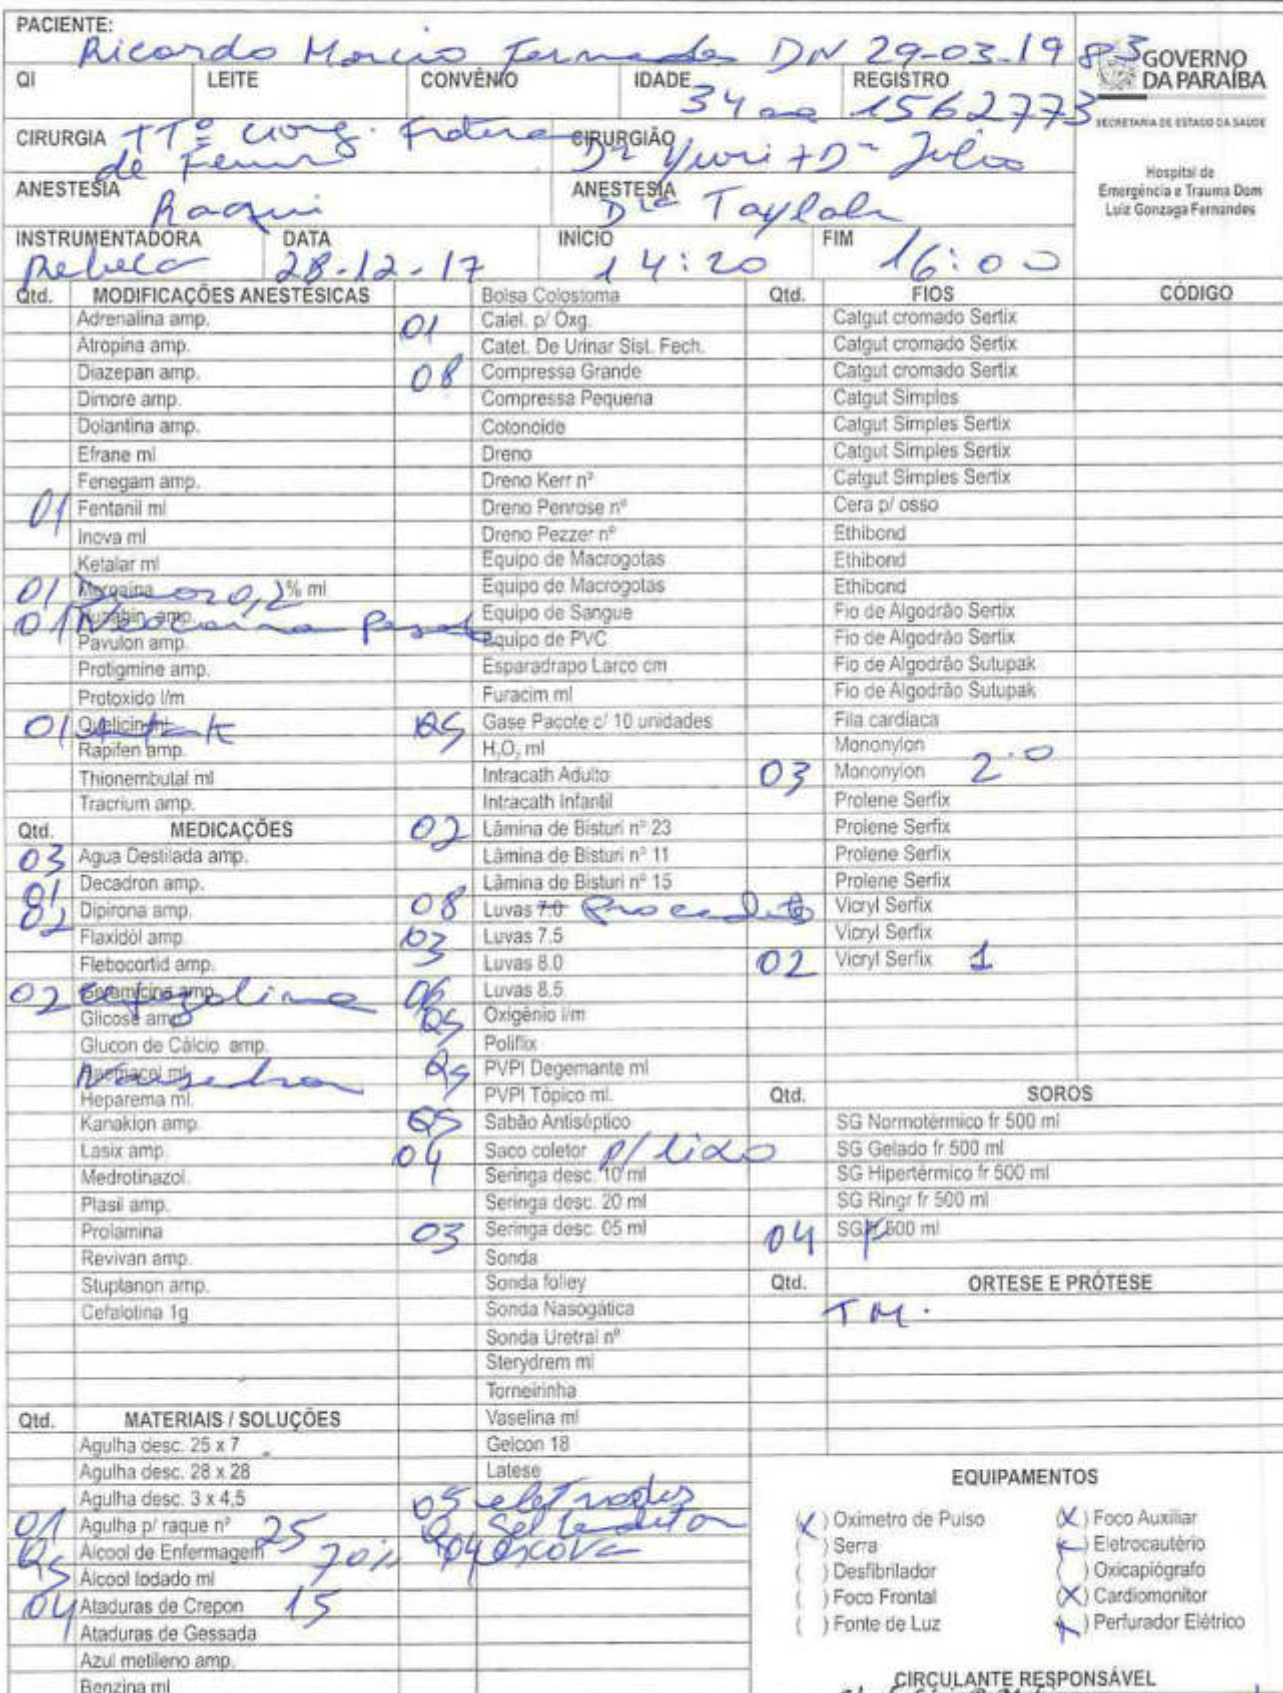 PACIENTE: Ricardo Marcio Fernandes DN 29-03-1983
GOVERNO
DA PARAÍBA
SECRETARIA DE ESTADO DA SAÚDE
Hospital de
Emergência e Trauma Dom
Luiz Gonzaga Fernandes
QI LEITE CONVÊNIO IDADE 34 REGISTRO 1562773
CIRURGIA TTº cirurg. Fratura CIRURGIÃO
de Femur Dr Yuri + Dr Julio
ANESTESIA Raqui ANESTESIA Drª Taylola
INSTRUMENTADORA DATA INÍCIO FIM
Rebeca 28-12-17 14:20 16:00
Qtd. MODIFICAÇÕES ANESTÉSICAS
Adrenalina amp.
Atropina amp.
Diazepan amp.
Dimore amp.
Dolantina amp.
Efrane ml
Fenegam amp.
01 Fentanil ml
Inova ml
Ketalar ml
01 0,2 % ml
01 Neocaina Pesada
Pavulon amp.
Protigmine amp.
Protoxido l/m
01 Quelicin
Rapifen amp.
Thionembutal ml
Tracrium amp.
Qtd. MEDICAÇÕES
03 Agua Destilada amp.
01 Decadron amp.
02 Dipirona amp.
Flaxidol amp
Flebocortid amp.
02 Garamicina amp. Cefazolina
Glicose amp
Glucon de Cálcio amp.
Nausedron
Heparema ml.
Kanakion amp.
Lasix amp.
Medrotinazol.
Plasil amp.
Prolamina
Revivan amp.
Stuplanon amp.
Cefalotina 1g
Qtd. MATERIAIS / SOLUÇÕES
Agulha desc. 25 x 7
Agulha desc. 28 x 28
Agulha desc. 3 x 4,5
01 Agulha p/ raque nº 25
Qs Álcool de Enfermagem 70%
Álcool Iodado ml
04 Ataduras de Crepon 15
Ataduras de Gessada
Azul metileno amp.
Benzina ml
Bolsa Colostoma
01 Catel. p/ Oxg.
Catet. De Urinar Sist. Fech.
08 Compressa Grande
Compressa Pequena
Cotonoide
Dreno
Dreno Kerr nº
Dreno Penrose nº
Dreno Pezzer nº
Equipo de Macrogotas
Equipo de Macrogotas
Equipo de Sangue
Equipo de PVC
Esparadrapo Larco cm
Furacim ml
QS Gase Pacote c/ 10 unidades
H₂O₂ ml
Intracath Adulto
Intracath Infantil
02 Lâmina de Bisturi nº 23
Lâmina de Bisturi nº 11
Lâmina de Bisturi nº 15
08 Luvas 7.0 Procedito
03 Luvas 7.5
Luvas 8.0
06 Luvas 8.5
QS Oxigênio l/m
Poliflix
QS PVPI Degemante ml
PVPI Tópico ml.
QS Sabão Antiséptico
04 Saco coletor p/ lixo
Seringa desc. 10 ml
Seringa desc. 20 ml
03 Seringa desc. 05 ml
Sonda
Sonda folley
Sonda Nasogática
Sonda Uretral nº
Sterydrem ml
Torneirinha
Vaselina ml
Gelcon 18
Latese
05 eletrodos
04 escova
Qtd. FIOS CÓDIGO
Catgut cromado Sertix
Catgut cromado Sertix
Catgut cromado Sertix
Catgut Simples
Catgut Simples Sertix
Catgut Simples Sertix
Catgut Simples Sertix
Cera p/ osso
Ethibond
Ethibond
Ethibond
Fio de Algodrão Sertix
Fio de Algodrão Sertix
Fio de Algodrão Sutupak
Fio de Algodrão Sutupak
Fila cardiaca
Mononylon
03 Mononylon 2.0
Prolene Serfix
Prolene Serfix
Prolene Serfix
Prolene Serfix
Vicryl Serfix
Vicryl Serfix
02 Vicryl Serfix 1
Qtd. SOROS
SG Normotérmico fr 500 ml
SG Gelado fr 500 ml
SG Hipertérmico fr 500 ml
SG Ringr fr 500 ml
04 SG 500 ml
Qtd. ORTESE E PRÓTESE
TM.
EQUIPAMENTOS
(X) Oximetro de Pulso (X) Foco Auxiliar
( ) Serra (X) Eletrocautério
( ) Desfibrilador ( ) Oxicapiógrafo
( ) Foco Frontal (X) Cardiomonitor
( ) Fonte de Luz (X) Perfurador Elétrico
CIRCULANTE RESPONSÁVEL